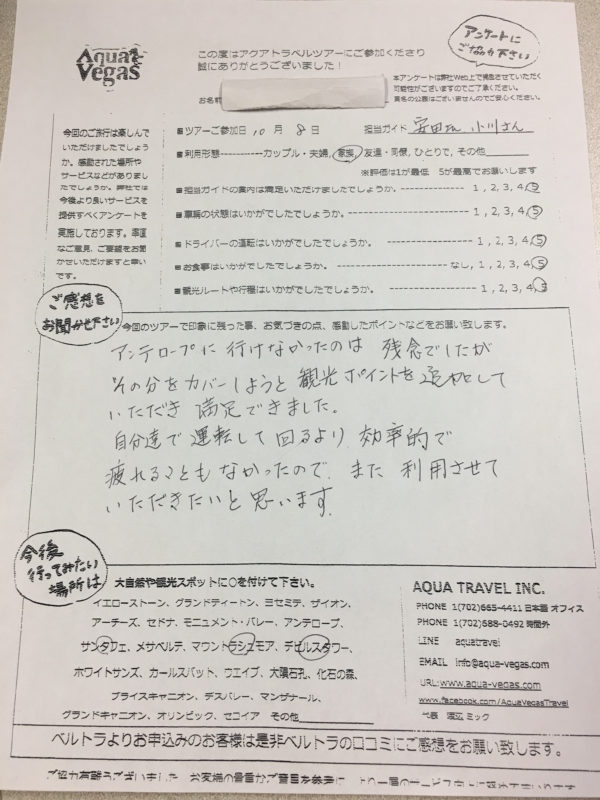 Aqua Vegas
この度はアクアトラベルツアーにご参加くださり
誠にありがとうございました！
アンケートに
ご協力下さい
本アンケートは弊社Web上で掲載させていただく
可能性がございますのでご了承ください。
実名の公表はございませんのでご安心ください。
お名前
今回のご旅行は楽しんで
いただけましたでしょう
か。感動された場所や
サービスなどがありまし
たでしょうか。弊社では
今後より良いサービスを
提供すべくアンケートを
実施しております。率直
なご意見、ご要望をお聞
かせいただけますと幸い
です。
■ツアーご参加日 10 月 8 日 担当ガイド 安田さん 小川さん
■利用形態------------カップル・夫婦, 家族, 友達・同僚, ひとりで, その他
※評価は1が最低 5が最高でお願いします
■担当ガイドの案内は満足いただけましたでしょうか。 1, 2, 3, 4, 5
■車輌の状態はいかがでしたでしょうか。 1, 2, 3, 4, 5
■ドライバーの運転はいかがでしたでしょうか。 1, 2, 3, 4, 5
■お食事はいかがでしたでしょうか。 なし, 1, 2, 3, 4, 5
■観光ルートや行程はいかがでしたでしょうか。 1, 2, 3, 4, 5
ご感想を
お聞かせ下さい
今回のツアーで印象に残った事、お気づきの点、感動したポイントなどをお願い致します。
アンテロープに行けなかったのは 残念でしたが
その分をカバーしようと観光ポイントを追加して
いただき 満足できました。
自分達で運転して回るより 効率的で
疲れることもなかったので、また利用させて
いただきたいと思います。
今後
行ってみたい
場所は
大自然や観光スポットに○を付けて下さい。
イエローストーン、グランドティートン、ヨセミテ、ザイオン、
アーチーズ、セドナ、モニュメント・バレー、アンテロープ、
サンタフェ、メサベルデ、マウントラシュモア、デビルスタワー、
ホワイトサンズ、カールスバット、ウエイブ、大隕石孔、化石の森、
ブライスキャニオン、デスバレー、マンザナール、
グランドキャニオン、オリンピック、セコイア その他
AQUA TRAVEL INC.
PHONE 1(702)665-4411 日本語 オフィス
PHONE 1(702)688-0492 時間外
LINE aquatravel
EMAIL info@aqua-vegas.com
URL:www.aqua-vegas.com
www.facebook.com/AquaVegasTravel
代表 渡辺 ミック
ベルトラよりお申込みのお客様は是非ベルトラの口コミにご感想をお願い致します。